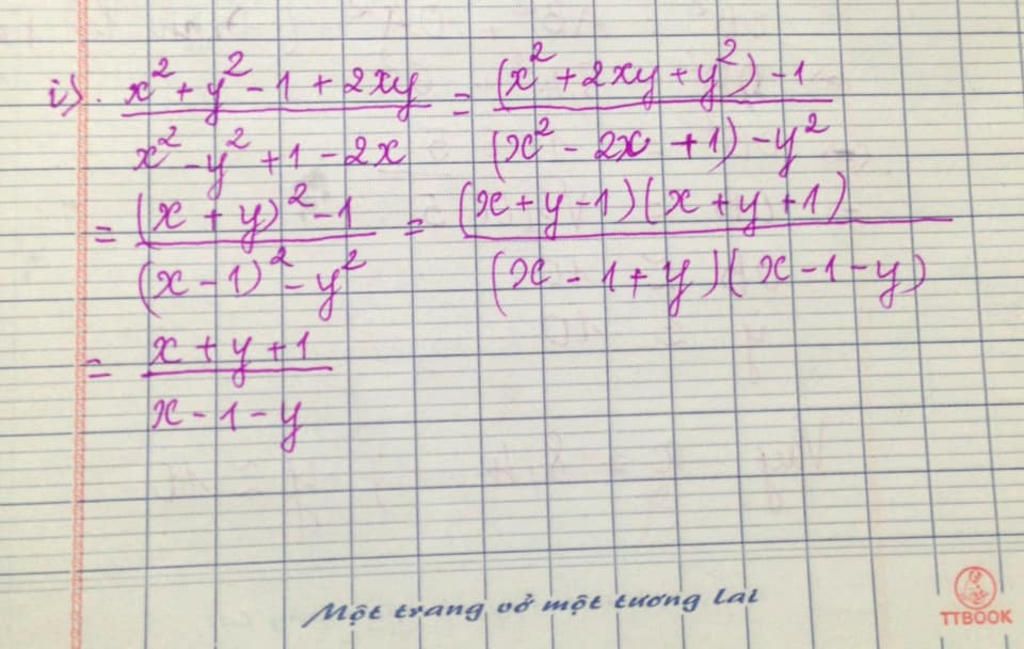 i). (x² + y² - 1 + 2xy)/(x² - y² + 1 - 2x) = ((x² + 2xy + y²) - 1)/((x² - 2x + 1) - y²)
= ((x + y)² - 1)/((x - 1)² - y²) = ((x + y - 1)(x + y + 1))/((x - 1 + y)(x - 1 - y))
= (x + y + 1)/(x - 1 - y)
Một trang vở một tương lai
TTBOOK